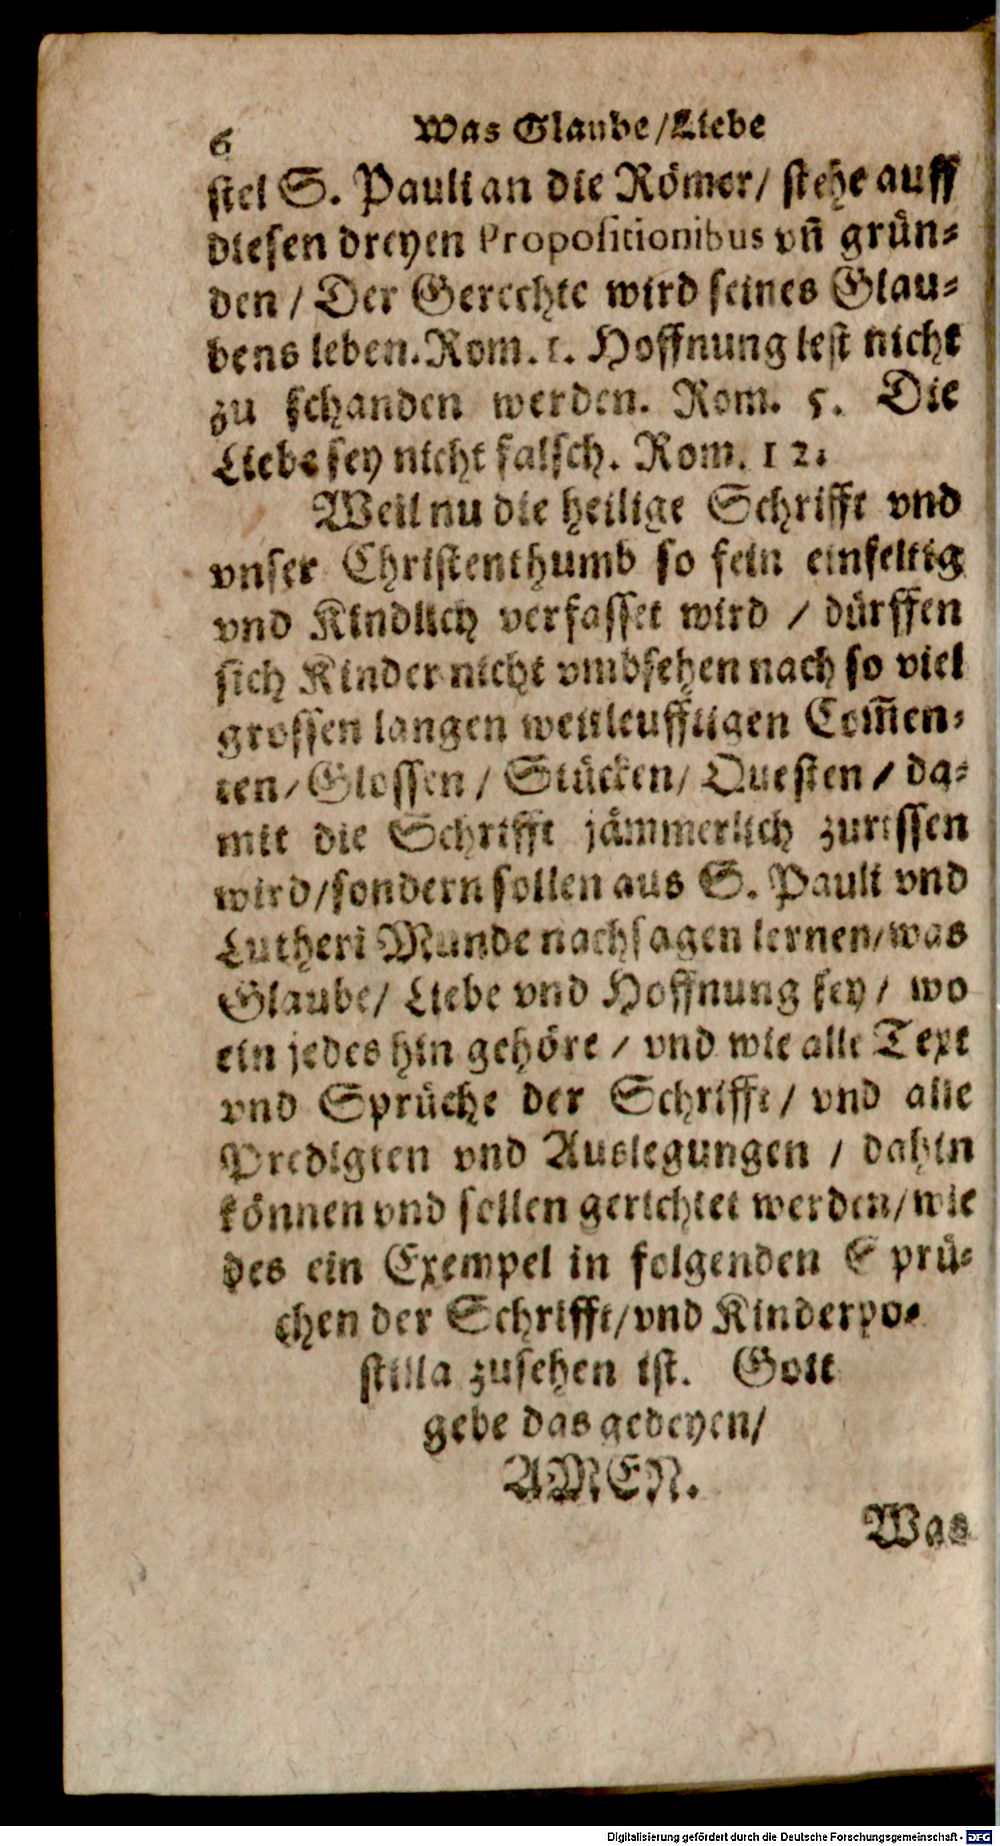 6 Was Glaube/Liebe
stel S. Pauli an die Römer/ stehe auff
diesen dreyen Propositionibus vñ grün⸗
den/ Der Gerechte wird seines Glau⸗
bens leben. Rom. 1. Hoffnung lest nicht
zu schanden werden. Rom. 5. Die
Liebe sey nicht falsch. Rom. 12.
Weil nu die heilige Schrifft vnd
vnser Christenthumb so fein einfeltig
vnd Kindlich verfasset wird / dürffen
sich Kinder nicht vmbsehen nach so viel
grossen langen weitleufftigen Com̃en⸗
ten/ Glossen/ Stücken/ Questen/ da⸗
mit die Schrifft jämmerlich zurissen
wird/ sondern sollen aus S. Pauli vnd
Lutheri Munde nachsagen lernen/ was
Glaube/ Liebe vnd Hoffnung sey/ wo
ein jedes hin gehöre/ vnd wie alle Text
vnd Sprüche der Schrifft/ vnd alle
Predigten vnd Auslegungen / dahin
können vnd sollen gerichtet werden/ wie
des ein Exempel in folgenden Sprü⸗
chen der Schrifft/ vnd Kinderpo⸗
stilla zusehen ist. Gott
gebe das gedeyen/
AMEN.
Was
Digitalisierung gefördert durch die Deutsche Forschungsgemeinschaft - DFG